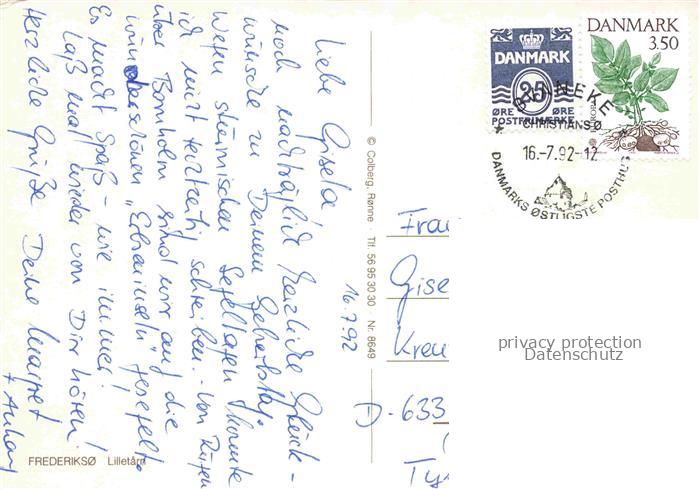 Liebe Gisela,
noch nachträglich herzliche Glück-
wünsche zu Deinem Geburtstag.
Wegen stürmischen Segeltagen konnte
ich nicht rechtzeitig schreiben. - Von Rügen
über Bornholm sind wir auf die
wunderschönen „Erbseninseln" gesegelt.
Es macht Spaß - wie immer!
Laß mal wieder von Dir hören!
Herzliche Grüße Deine Margret
+
16.7.92
© Colberg, Rønne · Tlf. 56 95 30 30 Nr. 8649
FREDERIKSØ Lilletårn
DANMARK
25
ØRE ØRE
POSTFRIMÆRKE
DANMARK
3.50
EUROPA
SVANEKE
CHRISTIANSØ
16.-7.92-12
DANMARKS ØSTLIGSTE POSTHUS
Frau
Gise
Kreu
D-633
privacy protection
Datenschutz